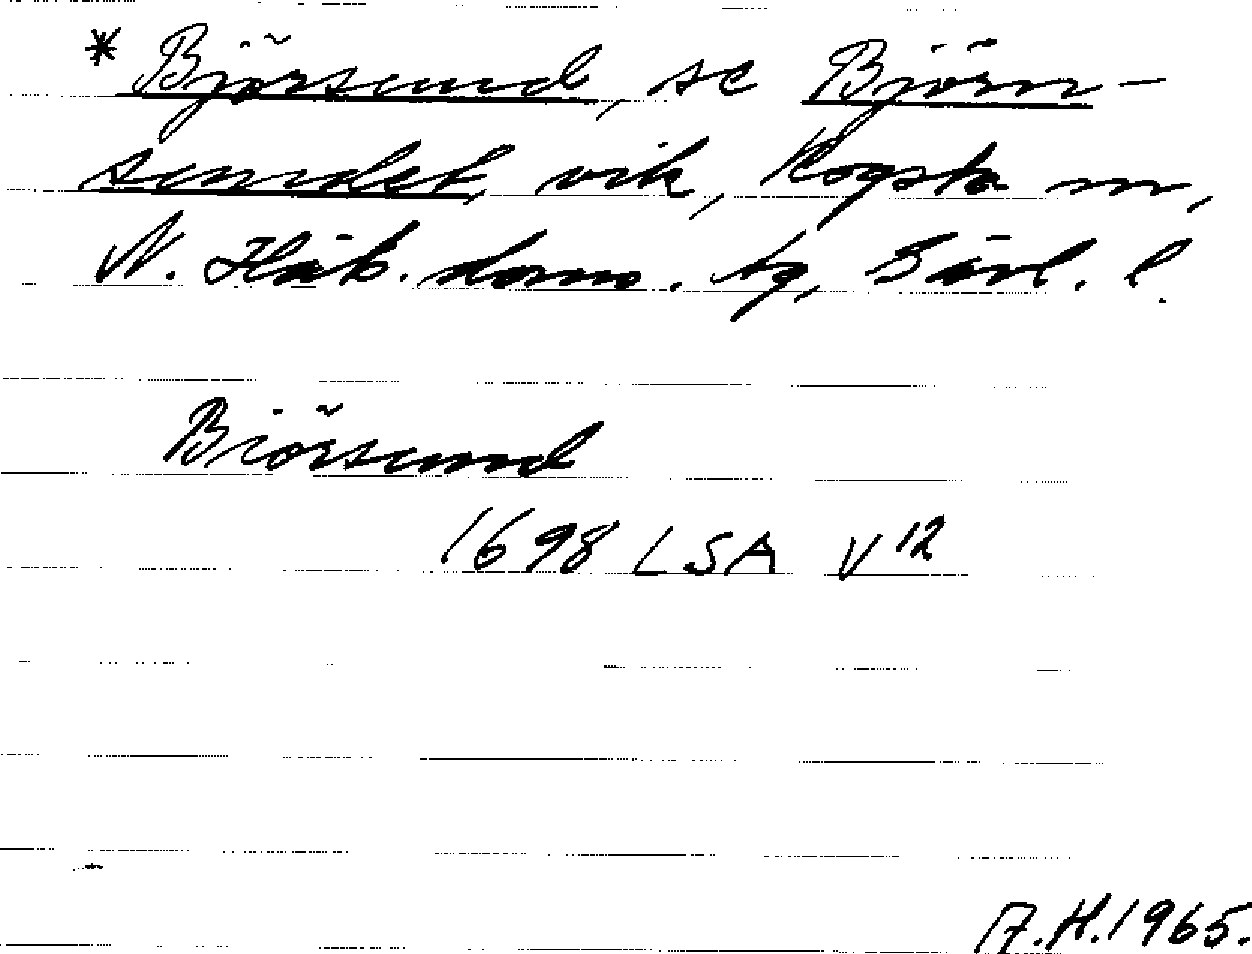 * Björsund, se Björn-
sundet, vik, Rogsta sn,
N. Häls. doms. tg, Gävl. l.
Biörsund
1698 LSA V 12
A.H. 1965.